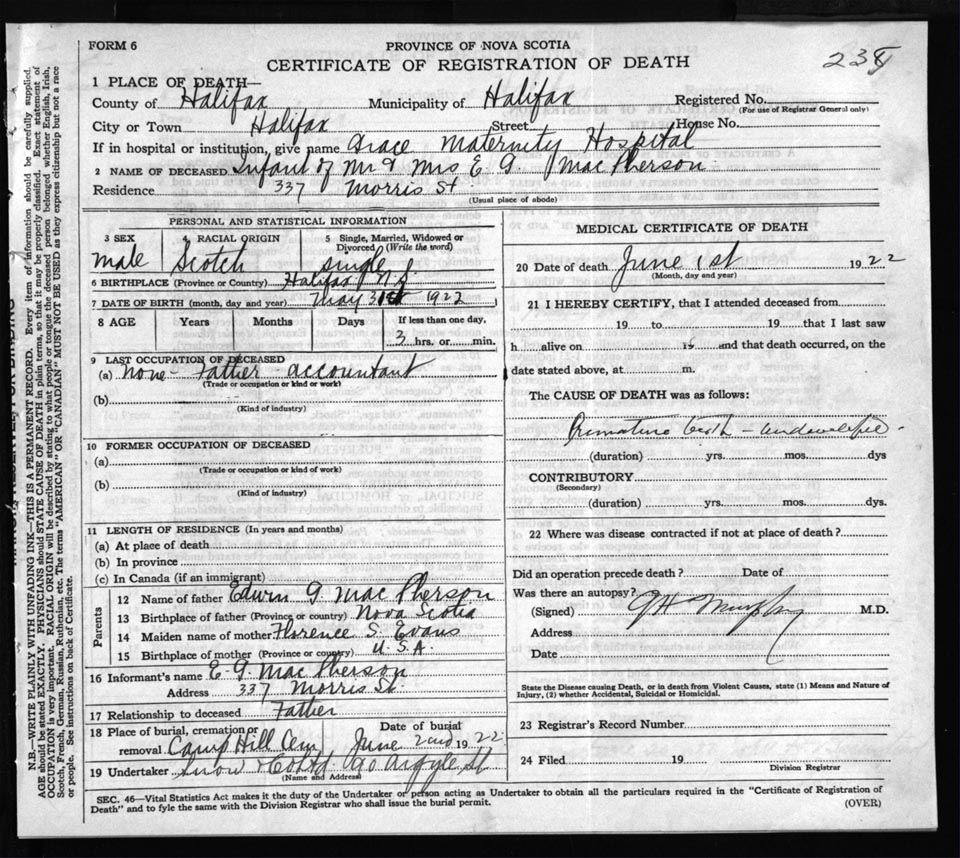 FORM 6
PROVINCE OF NOVA SCOTIA
CERTIFICATE OF REGISTRATION OF DEATH
238
1 PLACE OF DEATH—
County of Halifax Municipality of Halifax Registered No.
(For use of Registrar General only)
City or Town Halifax Street House No.
If in hospital or institution, give name Grace Maternity Hospital
2 NAME OF DECEASED Infant of Mr & Mrs E G. MacPherson
Residence 337 Morris St.
(Usual place of abode)
PERSONAL AND STATISTICAL INFORMATION
3 SEX 4 RACIAL ORIGIN 5 Single, Married, Widowed or Divorced (Write the word)
male Scotch single
6 BIRTHPLACE (Province or Country) Halifax N.S.
7 DATE OF BIRTH (month, day and year) May 31st 1922
8 AGE Years Months Days If less than one day.
3 hrs. or min.
9 LAST OCCUPATION OF DECEASED
(a) none - Father - accountant
(Trade or occupation or kind or work)
(b)
(Kind of industry)
10 FORMER OCCUPATION OF DECEASED
(a)
(Trade or occupation or kind of work)
(b)
(Kind of industry)
11 LENGTH OF RESIDENCE (In years and months)
(a) At place of death
(b) In province
(c) In Canada (if an immigrant)
Parents
12 Name of father Edwin G. MacPherson
13 Birthplace of father (Province or country) Nova Scotia
14 Maiden name of mother Florence S. Evans
15 Birthplace of mother (Province or country) U.S.A.
16 Informant's name E G MacPherson
Address 337 Morris St.
17 Relationship to deceased Father
18 Place of burial, cremation or removal Camp Hill Cem Date of burial June 2nd 1922
19 Undertaker Snow & Co Ltd 90 Argyle St
(Name and Address)
MEDICAL CERTIFICATE OF DEATH
20 Date of death June 1st 1922
(Month, day and year)
21 I HEREBY CERTIFY, that I attended deceased from
19 to 19 that I last saw
h alive on 19 and that death occurred, on the
date stated above, at m.
The CAUSE OF DEATH was as follows:
Premature birth - undeveloped -
(duration) yrs. mos. dys
CONTRIBUTORY
(Secondary)
(duration) yrs. mos. dys.
22 Where was disease contracted if not at place of death?
Did an operation precede death? Date of
Was there an autopsy?
(Signed) M.D.
Address
Date
State the Disease causing Death, or in death from Violent Causes, state (1) Means and Nature of
Injury, (2) whether Accidental, Suicidal or Homicidal.
23 Registrar's Record Number
24 Filed 19
Division Registrar
SEC. 46—Vital Statistics Act makes it the duty of the Undertaker or person acting as Undertaker to obtain all the particulars required in the "Certificate of Registration of
Death" and to fyle the same with the Division Registrar who shall issue the burial permit.
(OVER)
N.B.—WRITE PLAINLY WITH UNFADING INK—THIS IS A PERMANENT RECORD. Every item of information should be carefully supplied.
AGE should be stated EXACTLY. PHYSICIANS should STATE CAUSE OF DEATH in plain terms, so that it may be properly classified. Exact statement of
OCCUPATION is very important. RACIAL ORIGIN will be described by stating to what people or tongue the deceased person belonged whether English, Irish,
Scotch, French, German, Russian, Ruthenian, etc. The terms "AMERICAN" OR "CANADIAN" MUST NOT BE USED as they express citizenship but not a race
or people. See instructions on back of Certificate.